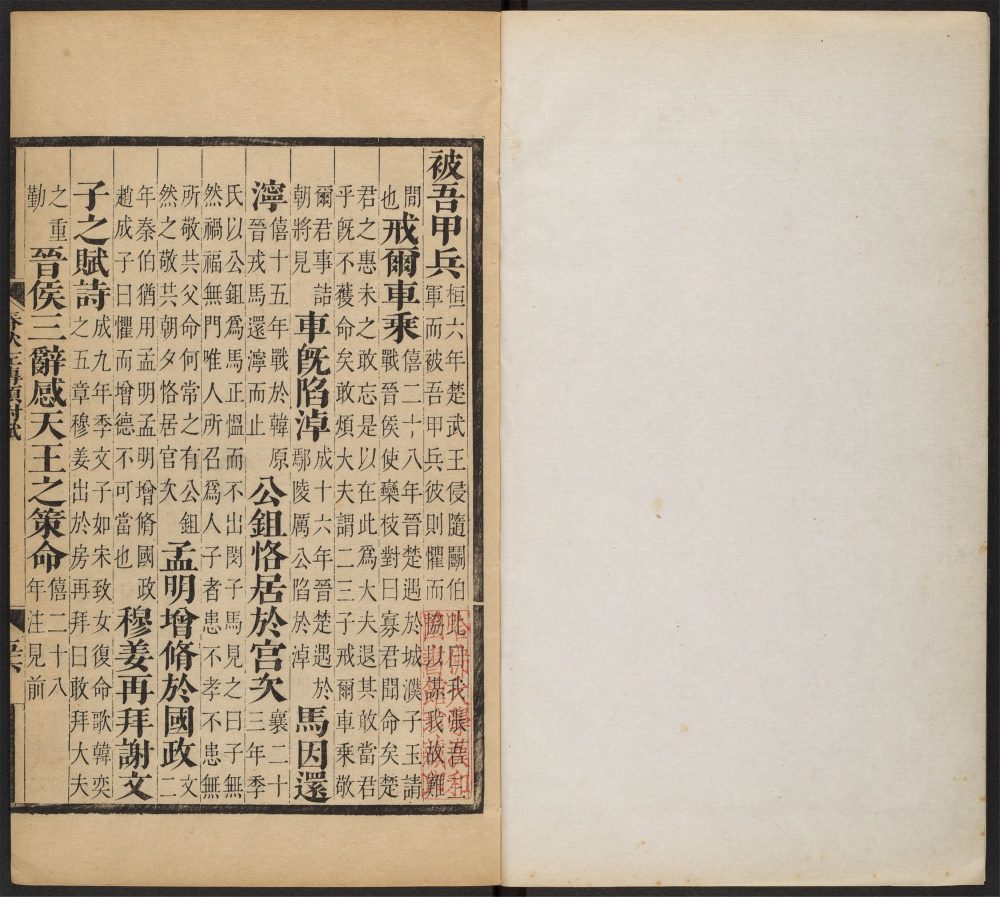 被吾甲兵
桓六年楚武王侵隨鬬伯比曰我張吾
軍而被吾甲兵彼則懼而協以謀我故難
間
也
戒爾車乘
僖二十八年晉楚遇於城濮子玉請
戰晉侯使欒枝對曰寡君聞命矣楚
君之惠未之敢忘是以在此爲大夫退其敢當君
乎旣不獲命矣敢煩大夫謂二三子戒爾車乘敬
爾君事詰
朝將見
車旣陷淖
成十六年晉楚遇於
鄢陵厲公陷於淖
馬因還
濘
僖十五年戰於韓原
晉戎馬還濘而止
公鉏恪居於官次
襄二十
三年季
氏以公鉏爲馬正慍而不出閔子馬見之曰子無
然禍福無門唯人所召爲人子者患不孝不患無
所敬共父命何常之有公鉏
然之敬共朝夕恪居官次
孟明增脩於國政
文
二
年秦伯猶用孟明孟明增脩國政
趙成子曰懼而增德不可當也
穆姜再拜謝文
子之賦詩
成九年季文子如宋致女復命歌韓奕
之五章穆姜出於房再拜曰敢拜大夫
之重
勤
晉侯三辭感天王之策命
僖二十八
年注見前
春秋左傳類對賦